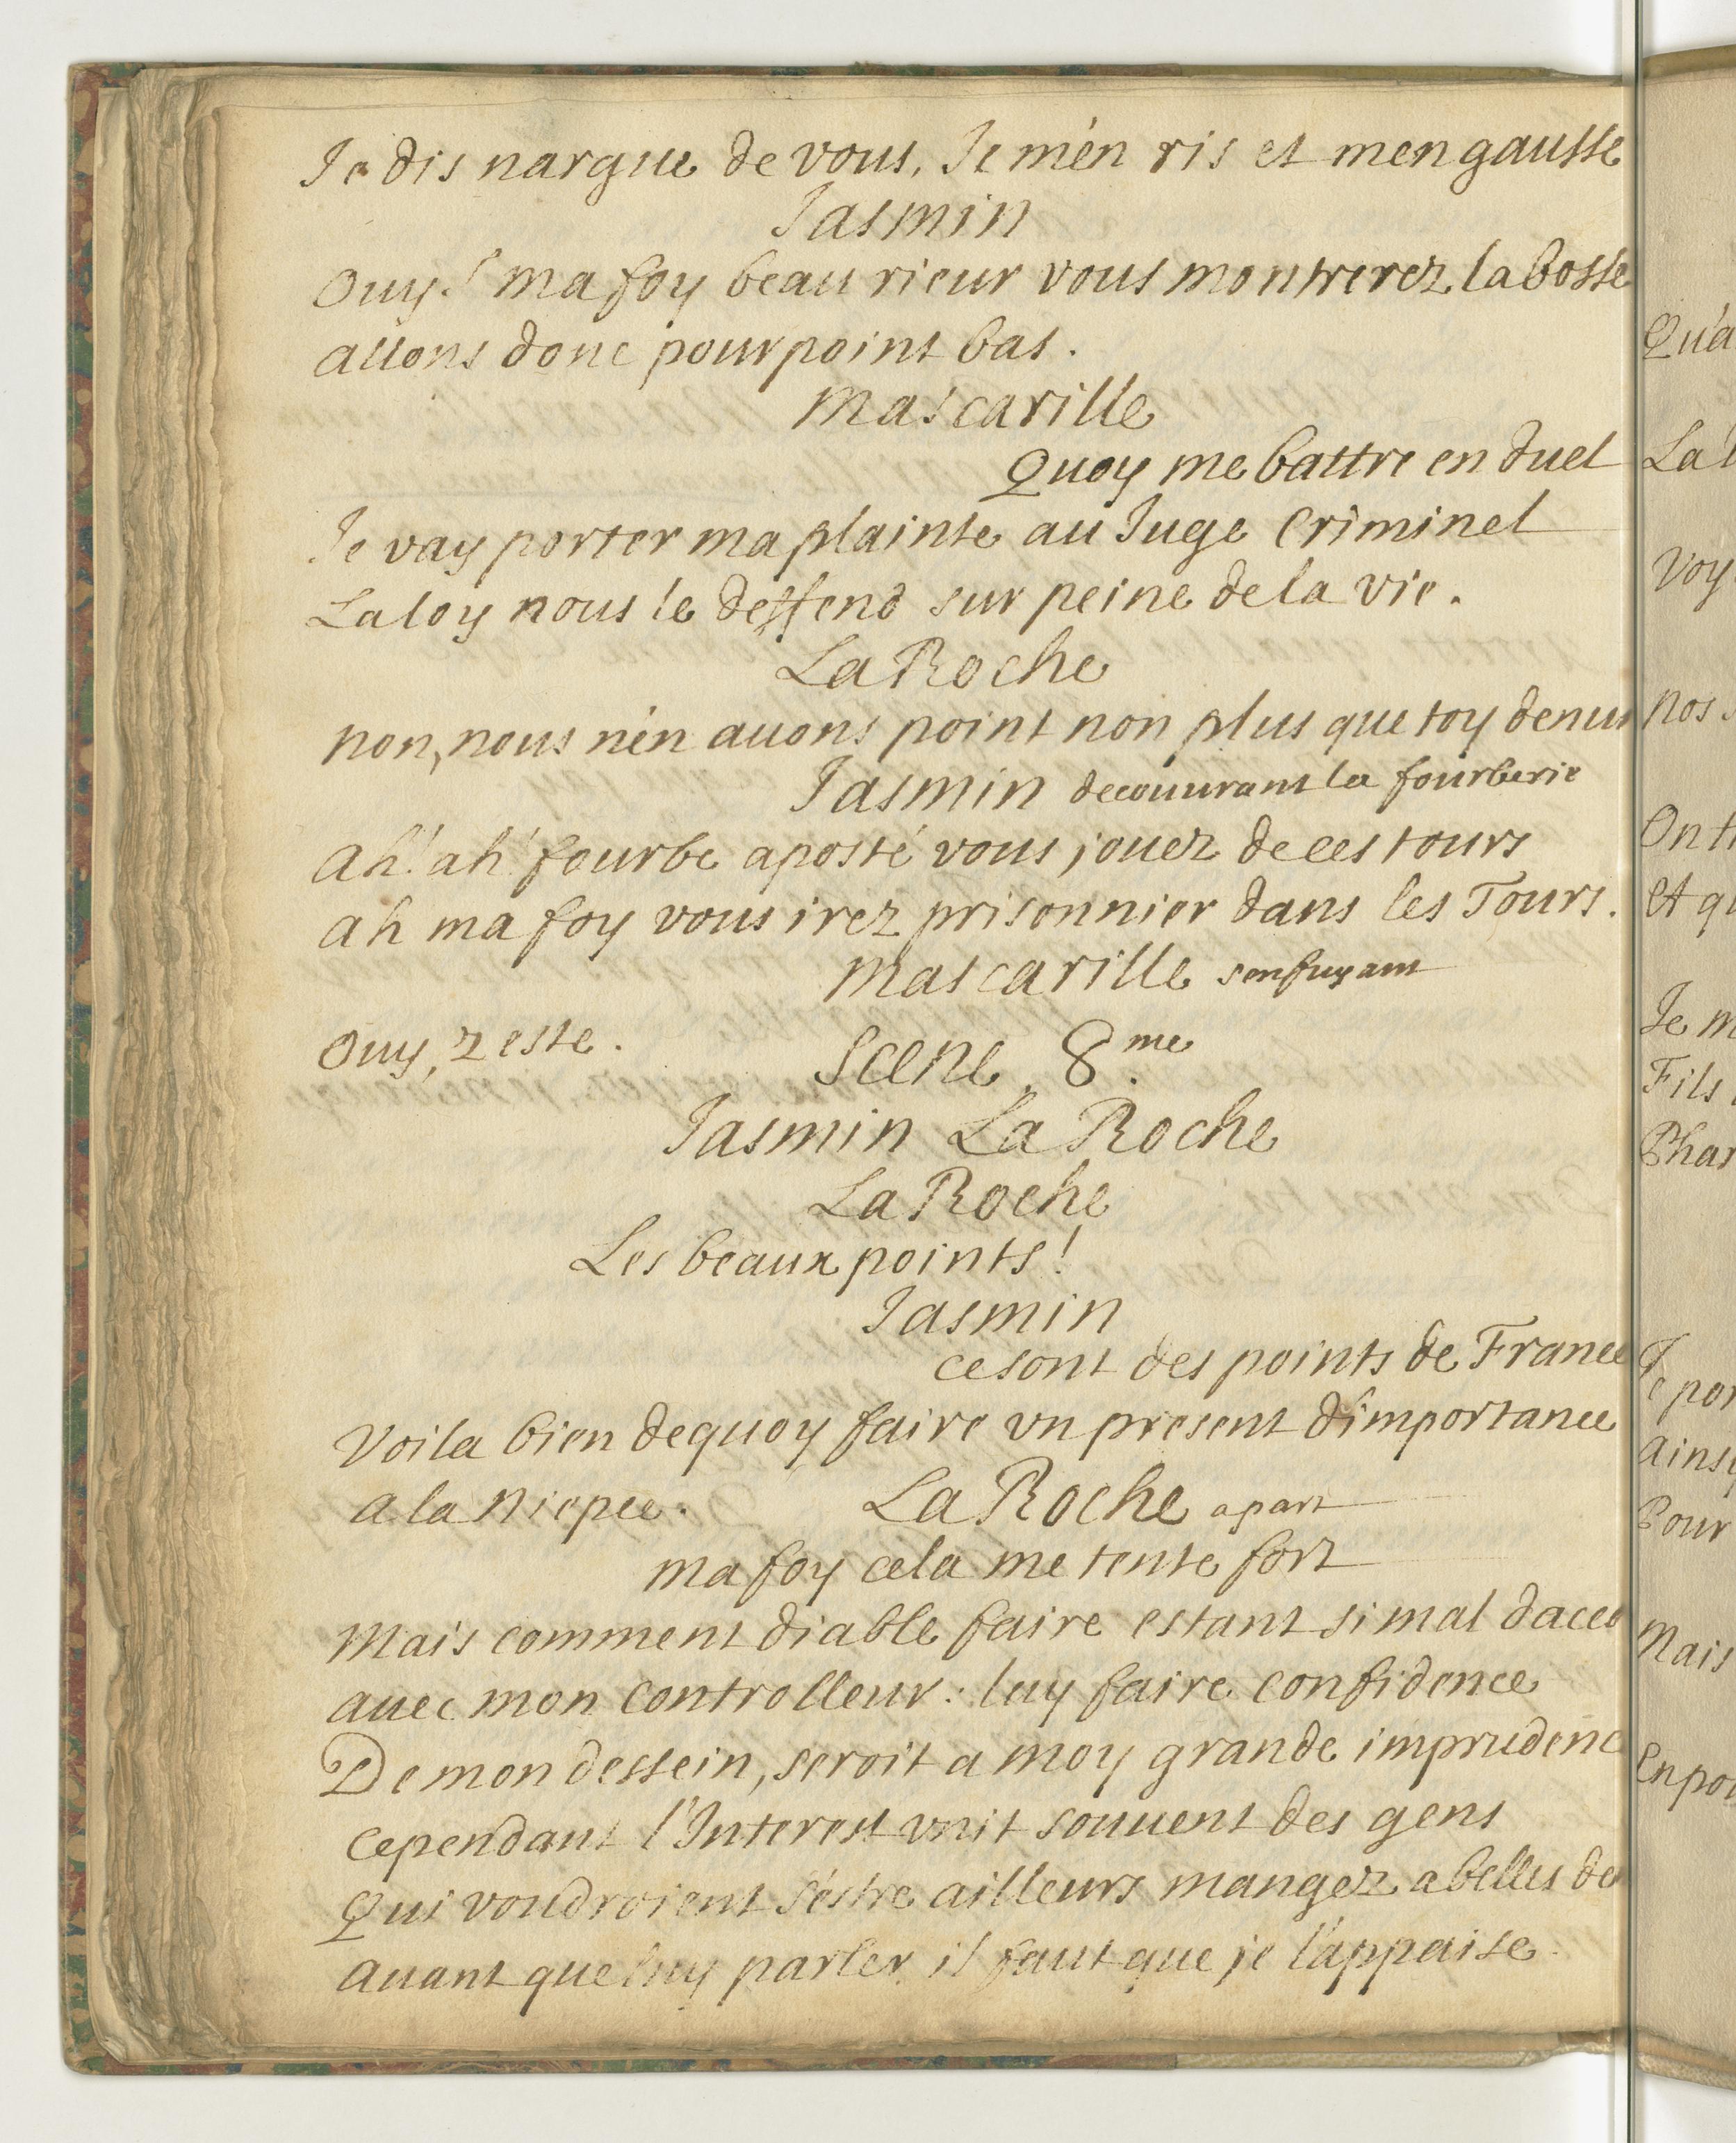 Je dis nargue de vous, Je m'en ris et men gausse
Jasmin
Ouy! ma foy beau rieur vous montrerez la bosse
allons donc pourpoint bas.
Mascarille
Quoy me battre en duel
Je vay porter ma plainte au Juge Criminel
La loy nous le deffend sur peine de la vie.
La Roche
non, nous n'en auons point non plus que toy denui
Jasmin decouurant la fourberie
Ah! ah! fourbe aposté vous jouez de ces tours
ah ma foy vous irez prisonnier dans les Tours.
Mascarille senfuyant
Ouy, zeste.
Scene 8.me
Jasmin La Roche
La Roche
Les beaux points!
Jasmin
ce sont des points de France
Voila bien dequoy faire vn present d'importance
a la Niepce.
La Roche apart
ma foy cela me tente fort
Mais comment diable faire estant si mal dacco
auec mon controlleur: luy faire confidence
De mon dessein, seroit a moy grande imprudenc
cependant l'Interest vnit souuent des gens
Qui voudroient s'estre ailleurs mangez a belles de
auant que luy parler il faut que je l'appaise.
Qu'a
La
Voy
nos
On
Et
Je
Fils
Je
Ainsy
Pour
Mais